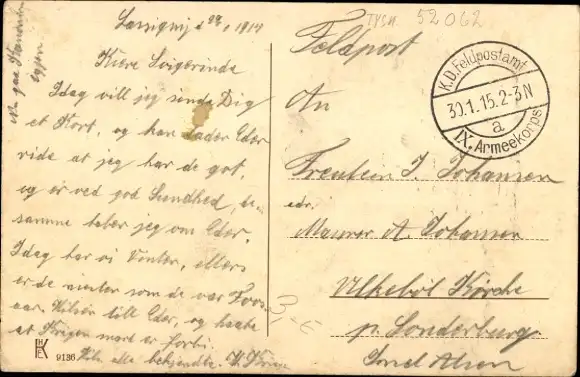 Lassigny d 29/1 1914
Kjære Svigerinde
Idag vill jeg sende Dig
et Kort, og han lader Eder
vide at jeg har de got,
og er ved god Sundhed, 
samme haber jeg om Eder.
Idag har vi Vinter, ellers
er de som de var Foor
aar. Hilsen till Eder, og haabe
at Krigen er forbi.
Hils alle bekjendte.
Nu gaa
igjen
TYSK 52062
Feldpost
K.D. Feldpostamt
30.1.15.2-3N
a
IX. Armeekorps
An
Freulein J. Johansen
adr.
Maurer A. Johansen
Ulkeböl Kirche
p. Sonderburg
Insel Alsen
3-E
HKE
9136